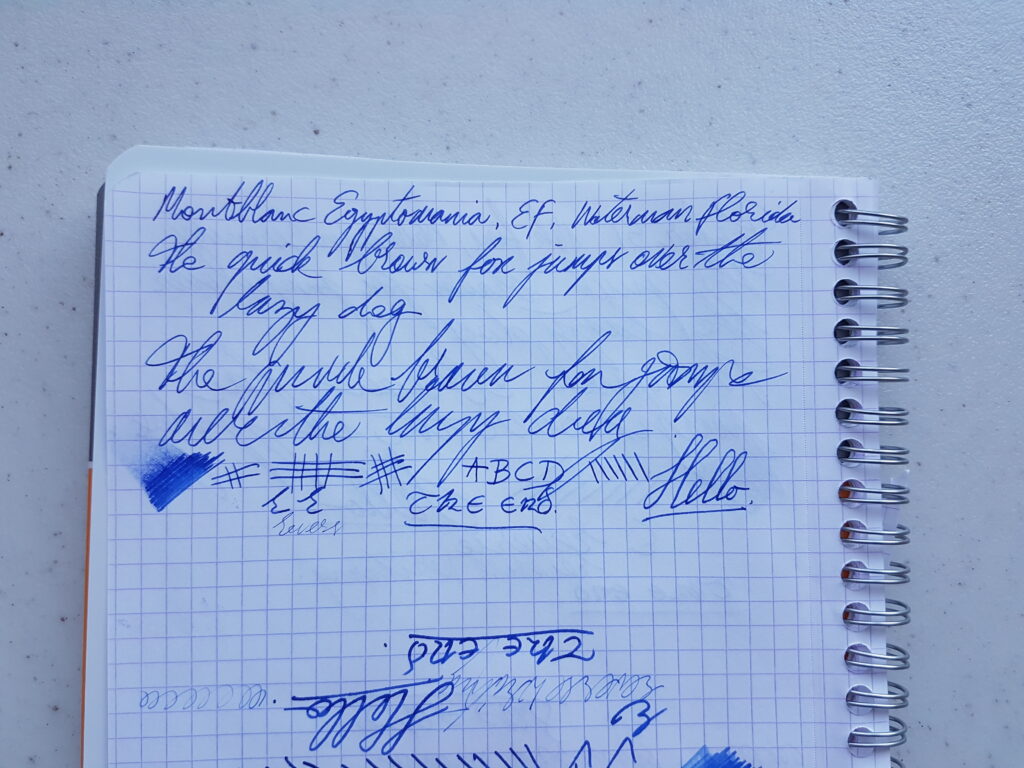 Montblanc Egyptomania, EF, Waterman Florida
The quick brown fox jumps over the
lazy dog
The quick brown fox jumps
over the lazy dog
ABCD
Hello.
The end.
Revers
The end.
Hello